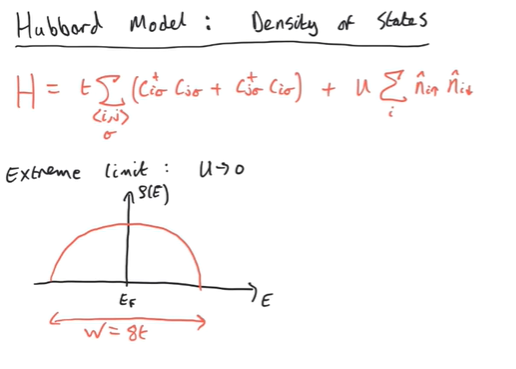 Hubbard Model : Density of States
H = t ∑ (C†iσ Cjσ + C†jσ Ciσ) + U ∑ n̂i↑ n̂i↓
<i,j> i
σ
Extreme limit : U→0
g(E)
EF E
W = 8t